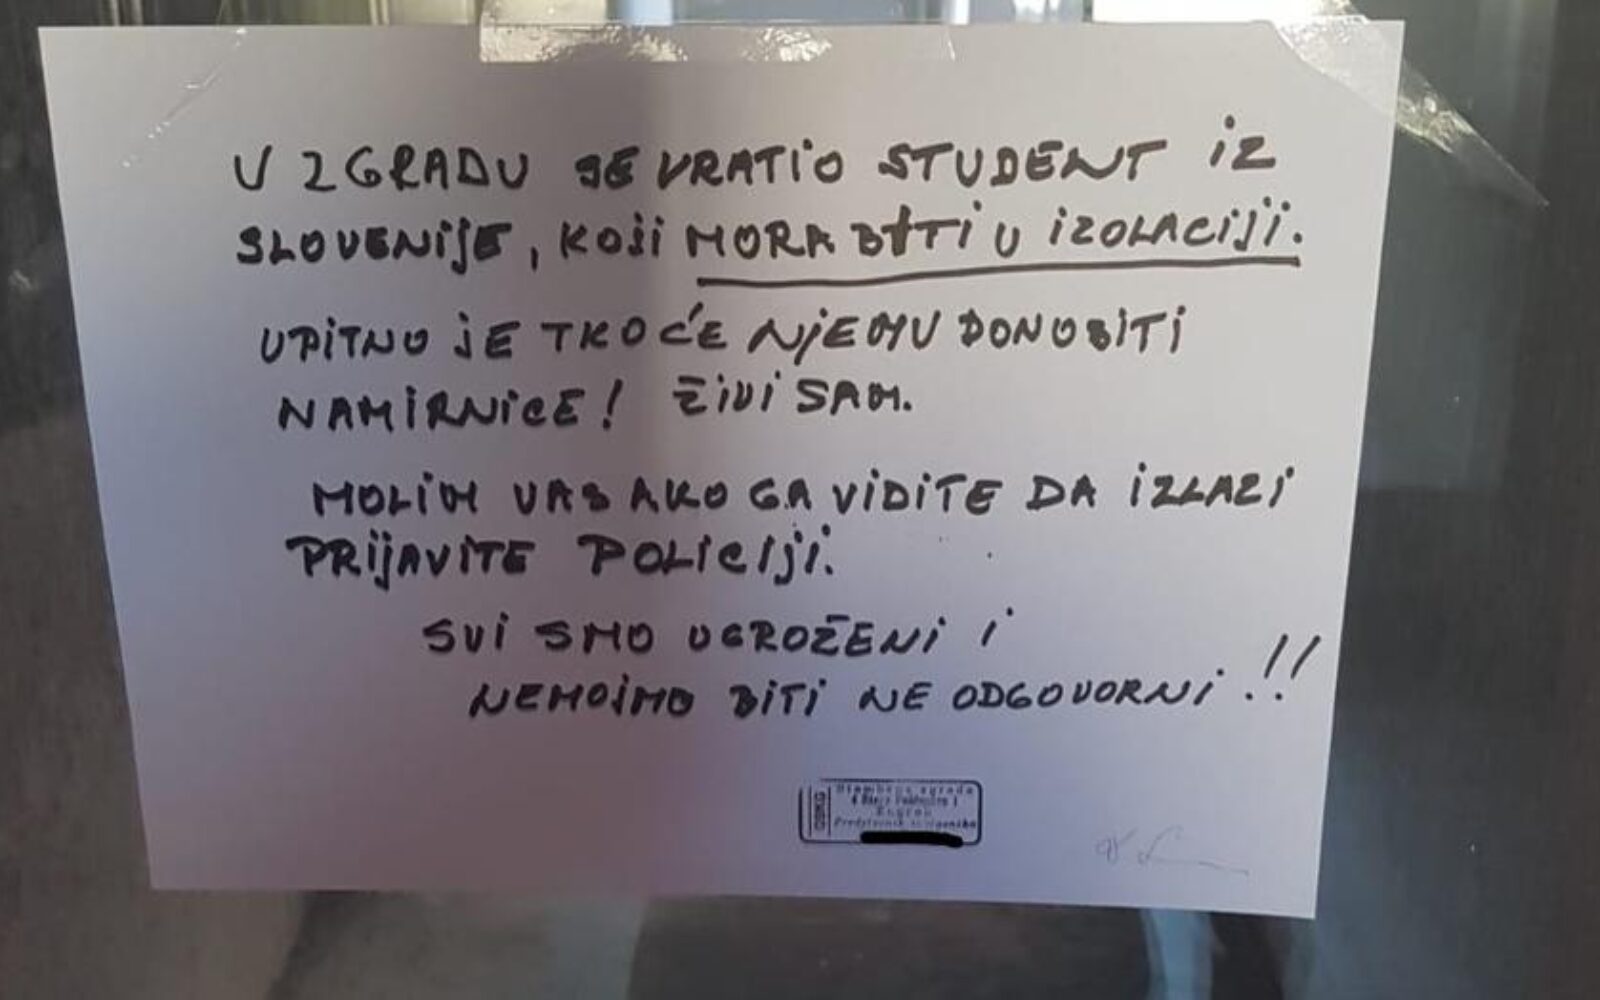 U ZGRADU SE VRATIO STUDENT IZ
SLOVENIJE, KOJI MORA BITI U IZOLACIJI.
UPITNO JE TKO ĆE NJEMU DONOSITI
NAMIRNICE! ŽIVI SAM.
MOLIM VAS AKO GA VIDITE DA IZLAZI
PRIJAVITE POLICIJI.
SVI SMO UGROŽENI I
NEMOJMO BITI NE ODGOVORNI !!
Stambena zgrada
Zagreb
Predstavnik suvlasnika